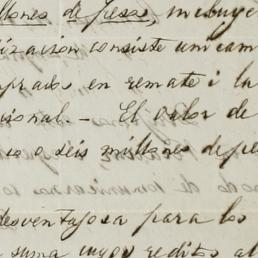 llones de pesos, incluye
ización consiste unicam
prado en remate i la
sional. - El valor de
co o seis millones de pe
desventajosa para los
suma cuyos reditos al